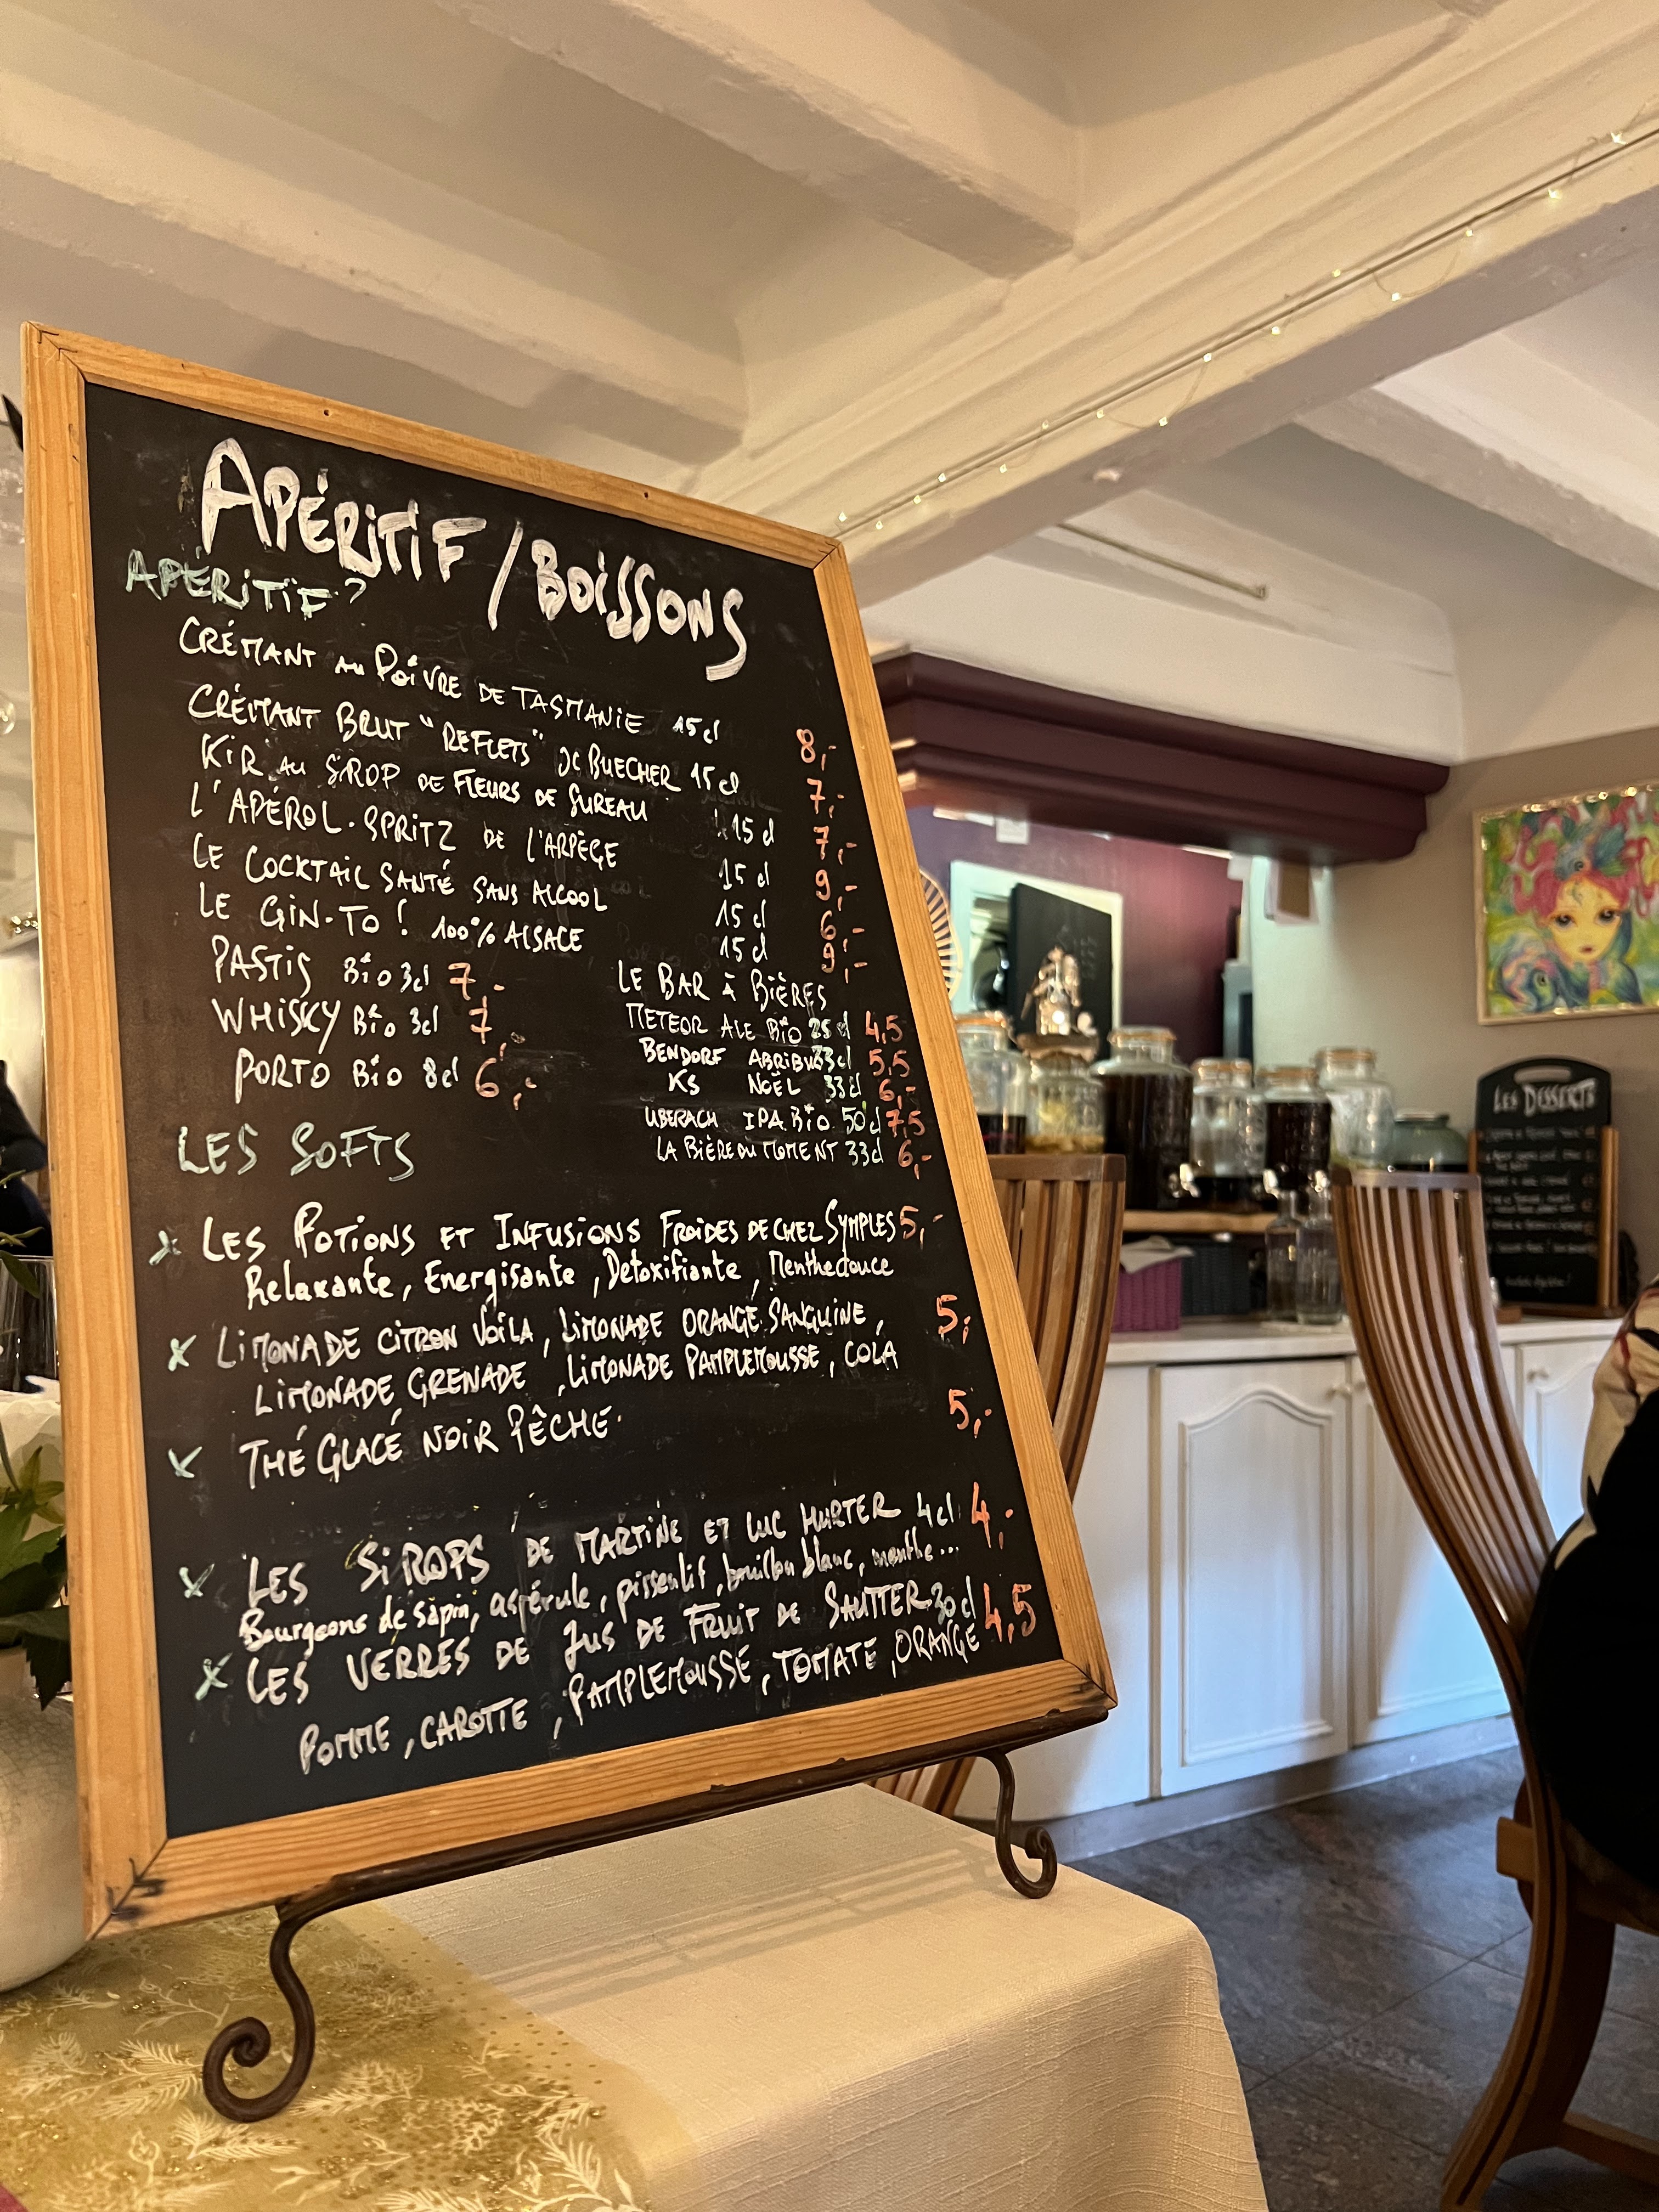 APÉRITIF / BOISSONS
APÉRITIF?
CRÉMANT AU POIVRE DE TASMANIE 15cl 8,-
CRÉMANT BRUT "REFLETS" JC BUECHER 15cl 7,-
KIR AU SIROP DE FLEURS DE SUREAU 15cl 7,-
L'APÉROL-SPRITZ DE L'ARPÈGE 15cl 9,-
LE COCKTAIL SANTÉ SANS ALCOOL 15cl 6,-
LE GIN-TO! 100% ALSACE 15cl 9,-
PASTIS BIO 3cl 7,-
WHISKY BIO 3cl 7,-
PORTO BIO 8cl 6,-
LE BAR À BIÈRES
METEOR ALE BIO 25cl 4,5
BENDORF ABRIBUS 33cl 5,5
KS NOËL 33cl 6,-
UBERACH IPA BIO 50cl 7,5
LA BIÈRE DU MOMENT 33cl 6,-
LES SOFTS
x LES POTIONS ET INFUSIONS FROIDES DE CHEZ SYMPLES 5,-
Relaxante, Energisante, Detoxifiante, Menthe douce
x LIMONADE CITRON VOILA, LIMONADE ORANGE SANGUINE, 5,
LIMONADE GRENADE, LIMONADE PAMPLEMOUSSE, COLA
x THÉ GLACÉ NOIR PÊCHE. 5,-
x LES SIROPS DE MARTINE ET LUC HURTER 4cl 4,-
Bourgeons de sapin, aspérule, pissenlit, bouillon blanc, menthe...
x LES VERRES DE JUS DE FRUIT DE SAUTTER 30cl 4,5
POMME, CAROTTE, PAMPLEMOUSSE, TOMATE, ORANGE
LES DESSERTS